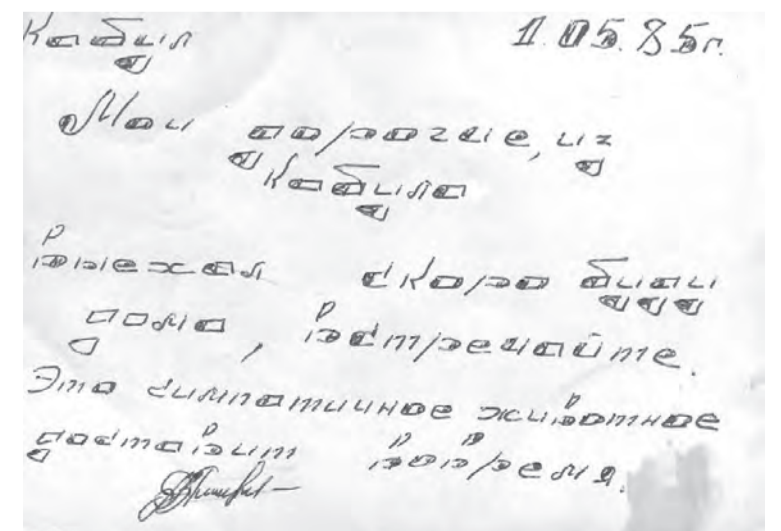 Кабул 1.05.85г.
Мои дорогие, из
Кабула
выехал скоро буду
дома, встречайте.
Это симпатичное животное
доставит вовремя.